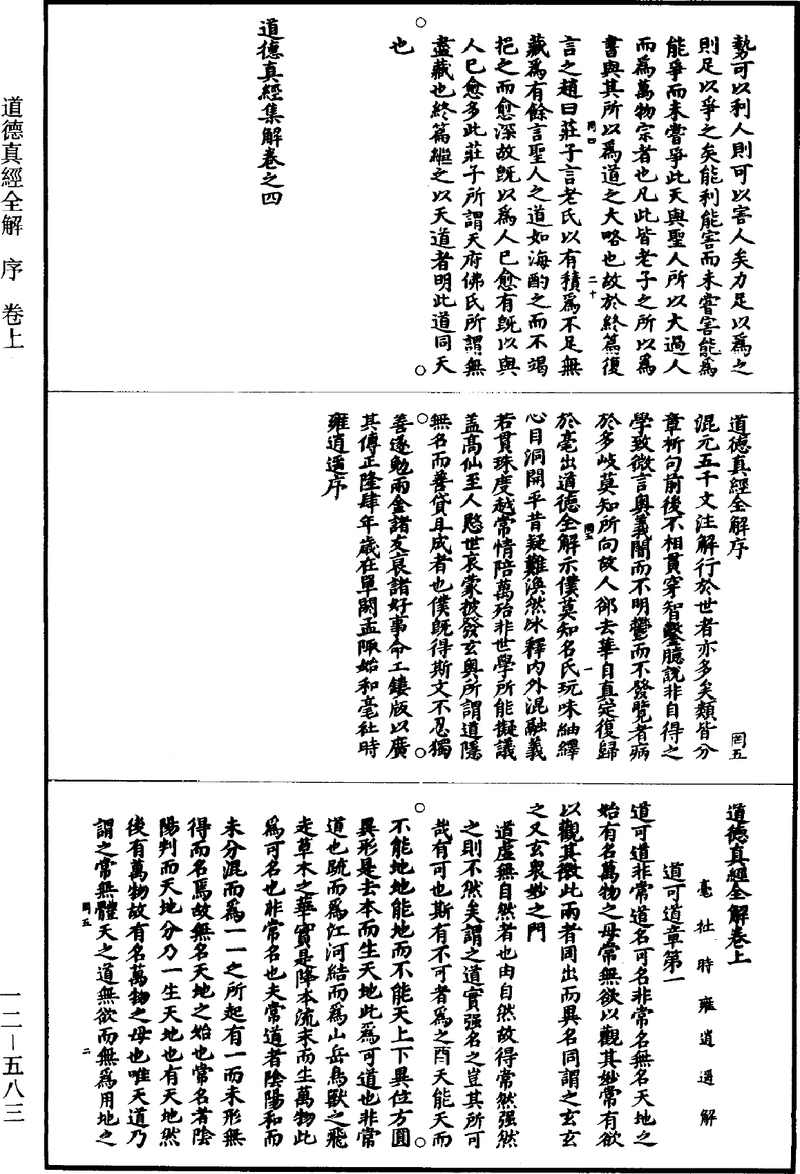 勢可以利人則可以害人矣力足以為之
則足以爭之矣能利能害而未嘗害能為
能爭而未嘗爭此天與聖人所以大過人
而為萬物宗者也凡此皆老子之所以為
書與其所以為道之大略也故於終篇復
罔四 二十
言之趙曰莊子言老氏以有積為不足無
藏為有餘言聖人之道如海酌之而不竭
挹之而愈深故既以為人已愈有既以與
人已愈多此莊子所謂天府佛氏所謂無
盡藏也終篇繼之以天道者明此道同天
也
道德真經集解卷之四
道德真經全解序
罔五
混元五千文注解行於世者亦多矣類皆分
章析句前後不相貫穿智鑿臆說非自得之
學致微言奧義闇而不明鬱而不發覽者病
於多岐莫知所向故人郤去華自真定復歸
罔五 一
於亳出道德全解示僕莫知名氏玩味紬繹
心目洞開平昔疑難渙然冰釋內外混融義
若貫珠度越常情陪萬殆非世學所能擬議
蓋高仙至人愍世哀蒙披發玄奧所謂道隱
無名而善貸且成者也僕既得斯文不忍獨
善遂勉兩金諸友裒諸好事命工鏤版以廣
其傳正隆肆年歲在單閼孟陬始和亳社時
雍逍遥序
道德真經全解卷上
亳社時雍逍遥解
道可道章第一
道可道非常道名可名非常名無名天地之
始有名萬物之母常無欲以觀其妙常有欲
以觀其徼此兩者同出而異名同謂之玄玄
之又玄衆妙之門
道虛無自然者也由自然故得常然強然
之則不然矣謂之道實強名之豈其所可
哉有可也斯有不可者為之酉天能天而
不能地地能地而不能天上下異位方圓
異形是去本而生天地此為可道也非常
道也䟽而為江河結而為山岳鳥獸之飛
走草木之華實是降本流末而生萬物此
為可名也非常名也夫常道者陰陽和而
未分混而為一一之所起有一而未形無
得而名焉故無名天地之始也常名者陰
陽判而天地分乃一生天地也有天地然
後有萬物故有名萬物之母也唯天道乃
罔五 二
謂之常無體天之道無欲而無為用地之
道德真經全解 序 卷上
一二—五八三